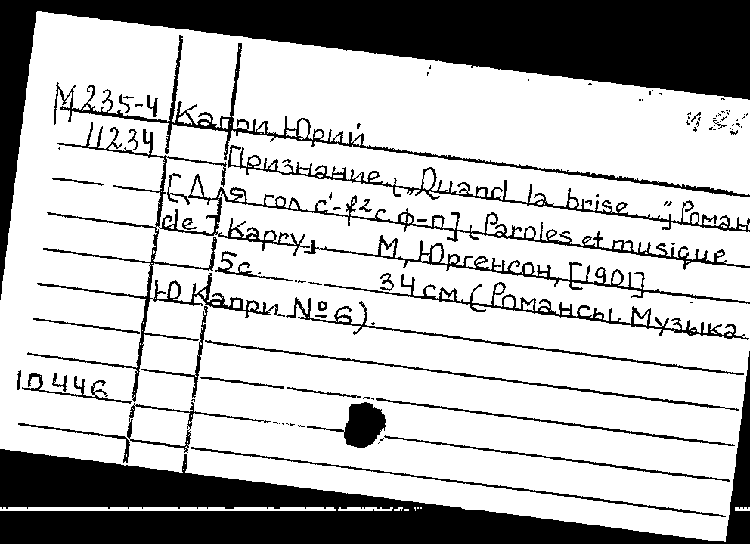 М 235-4 Капри, Юрий
11234
Признание. [„Quand la brise..."] Роман
[Для гол. c¹-f² с ф-п]. [Paroles et musique
de J. Kapry]. М., Юргенсон, [1901]
5с. 34см. (Романсы. Музыка
Ю. Капри № 6).
10446